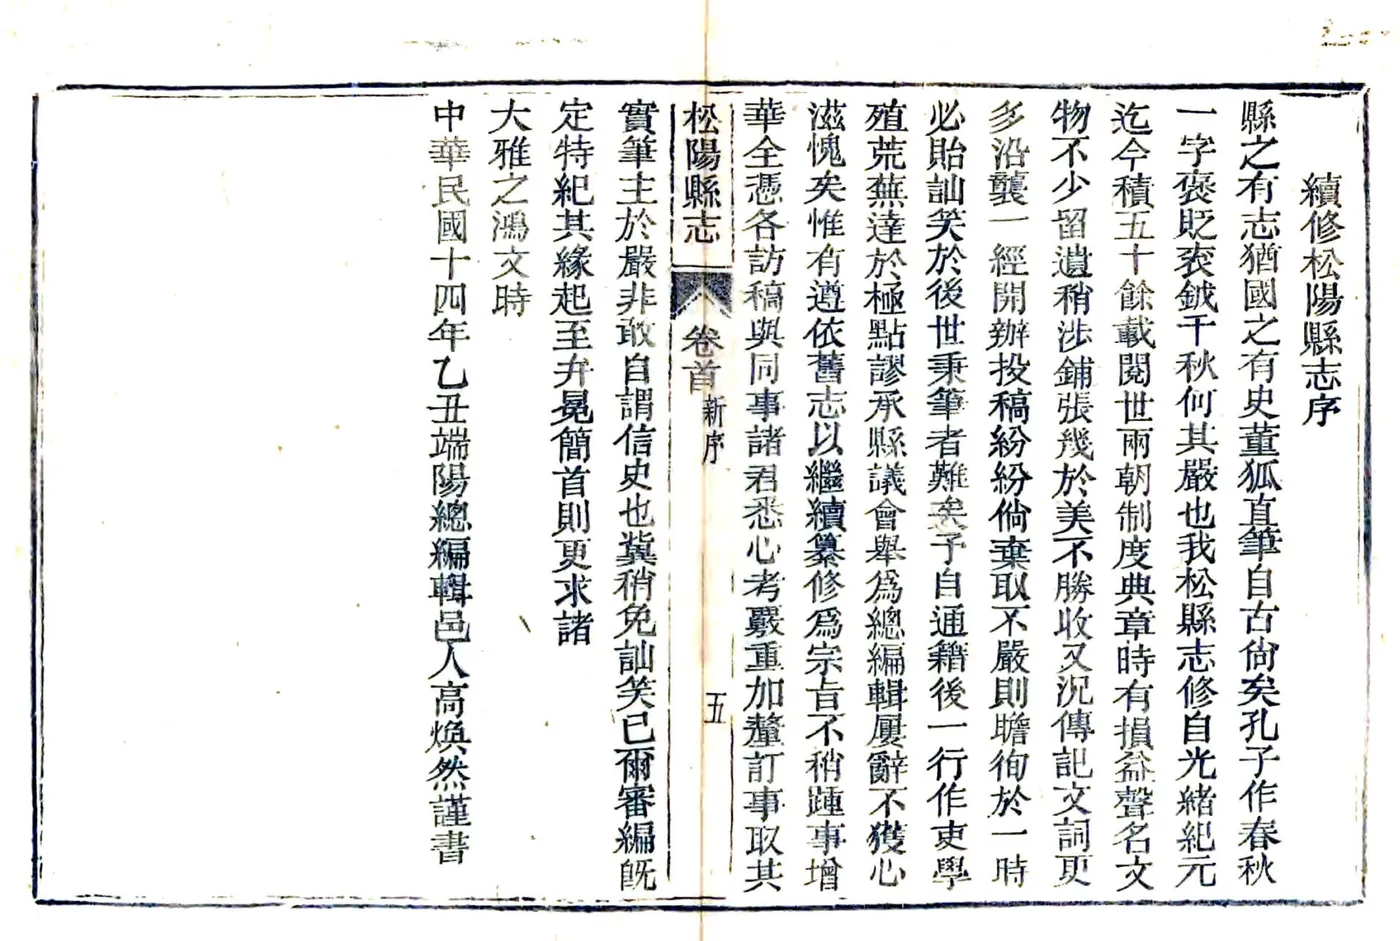 續修松陽縣志序
縣之有志猶國之有史董狐直筆自古尙矣孔子作春秋
一字褒貶袞鉞千秋何其嚴也我松縣志修自光緖紀元
迄今積五十餘載閱世兩朝制度典章時有損益聲名文
物不少留遺稍涉鋪張幾於美不勝收又況傳記文詞更
多沿襲一經開辦投稿紛紛倘棄取不嚴則瞻徇於一時
必貽訕笑於後世秉筆者難矣予自通籍後一行作吏學
殖荒蕪達於極點謬承縣議會舉爲總編輯屢辭不獲心
滋愧矣惟有遵依舊志以繼續纂修爲宗旨不稍踵事增
華全憑各訪稿與同事諸君悉心考覈重加釐訂事取其
松陽縣志 卷首 新序 五
實筆主於嚴非敢自謂信史也冀稍免訕笑已爾審編旣
定特紀其緣起至弁冕簡首則更求諸
大雅之鴻文時
中華民國十四年乙丑端陽總編輯邑人高煥然謹書